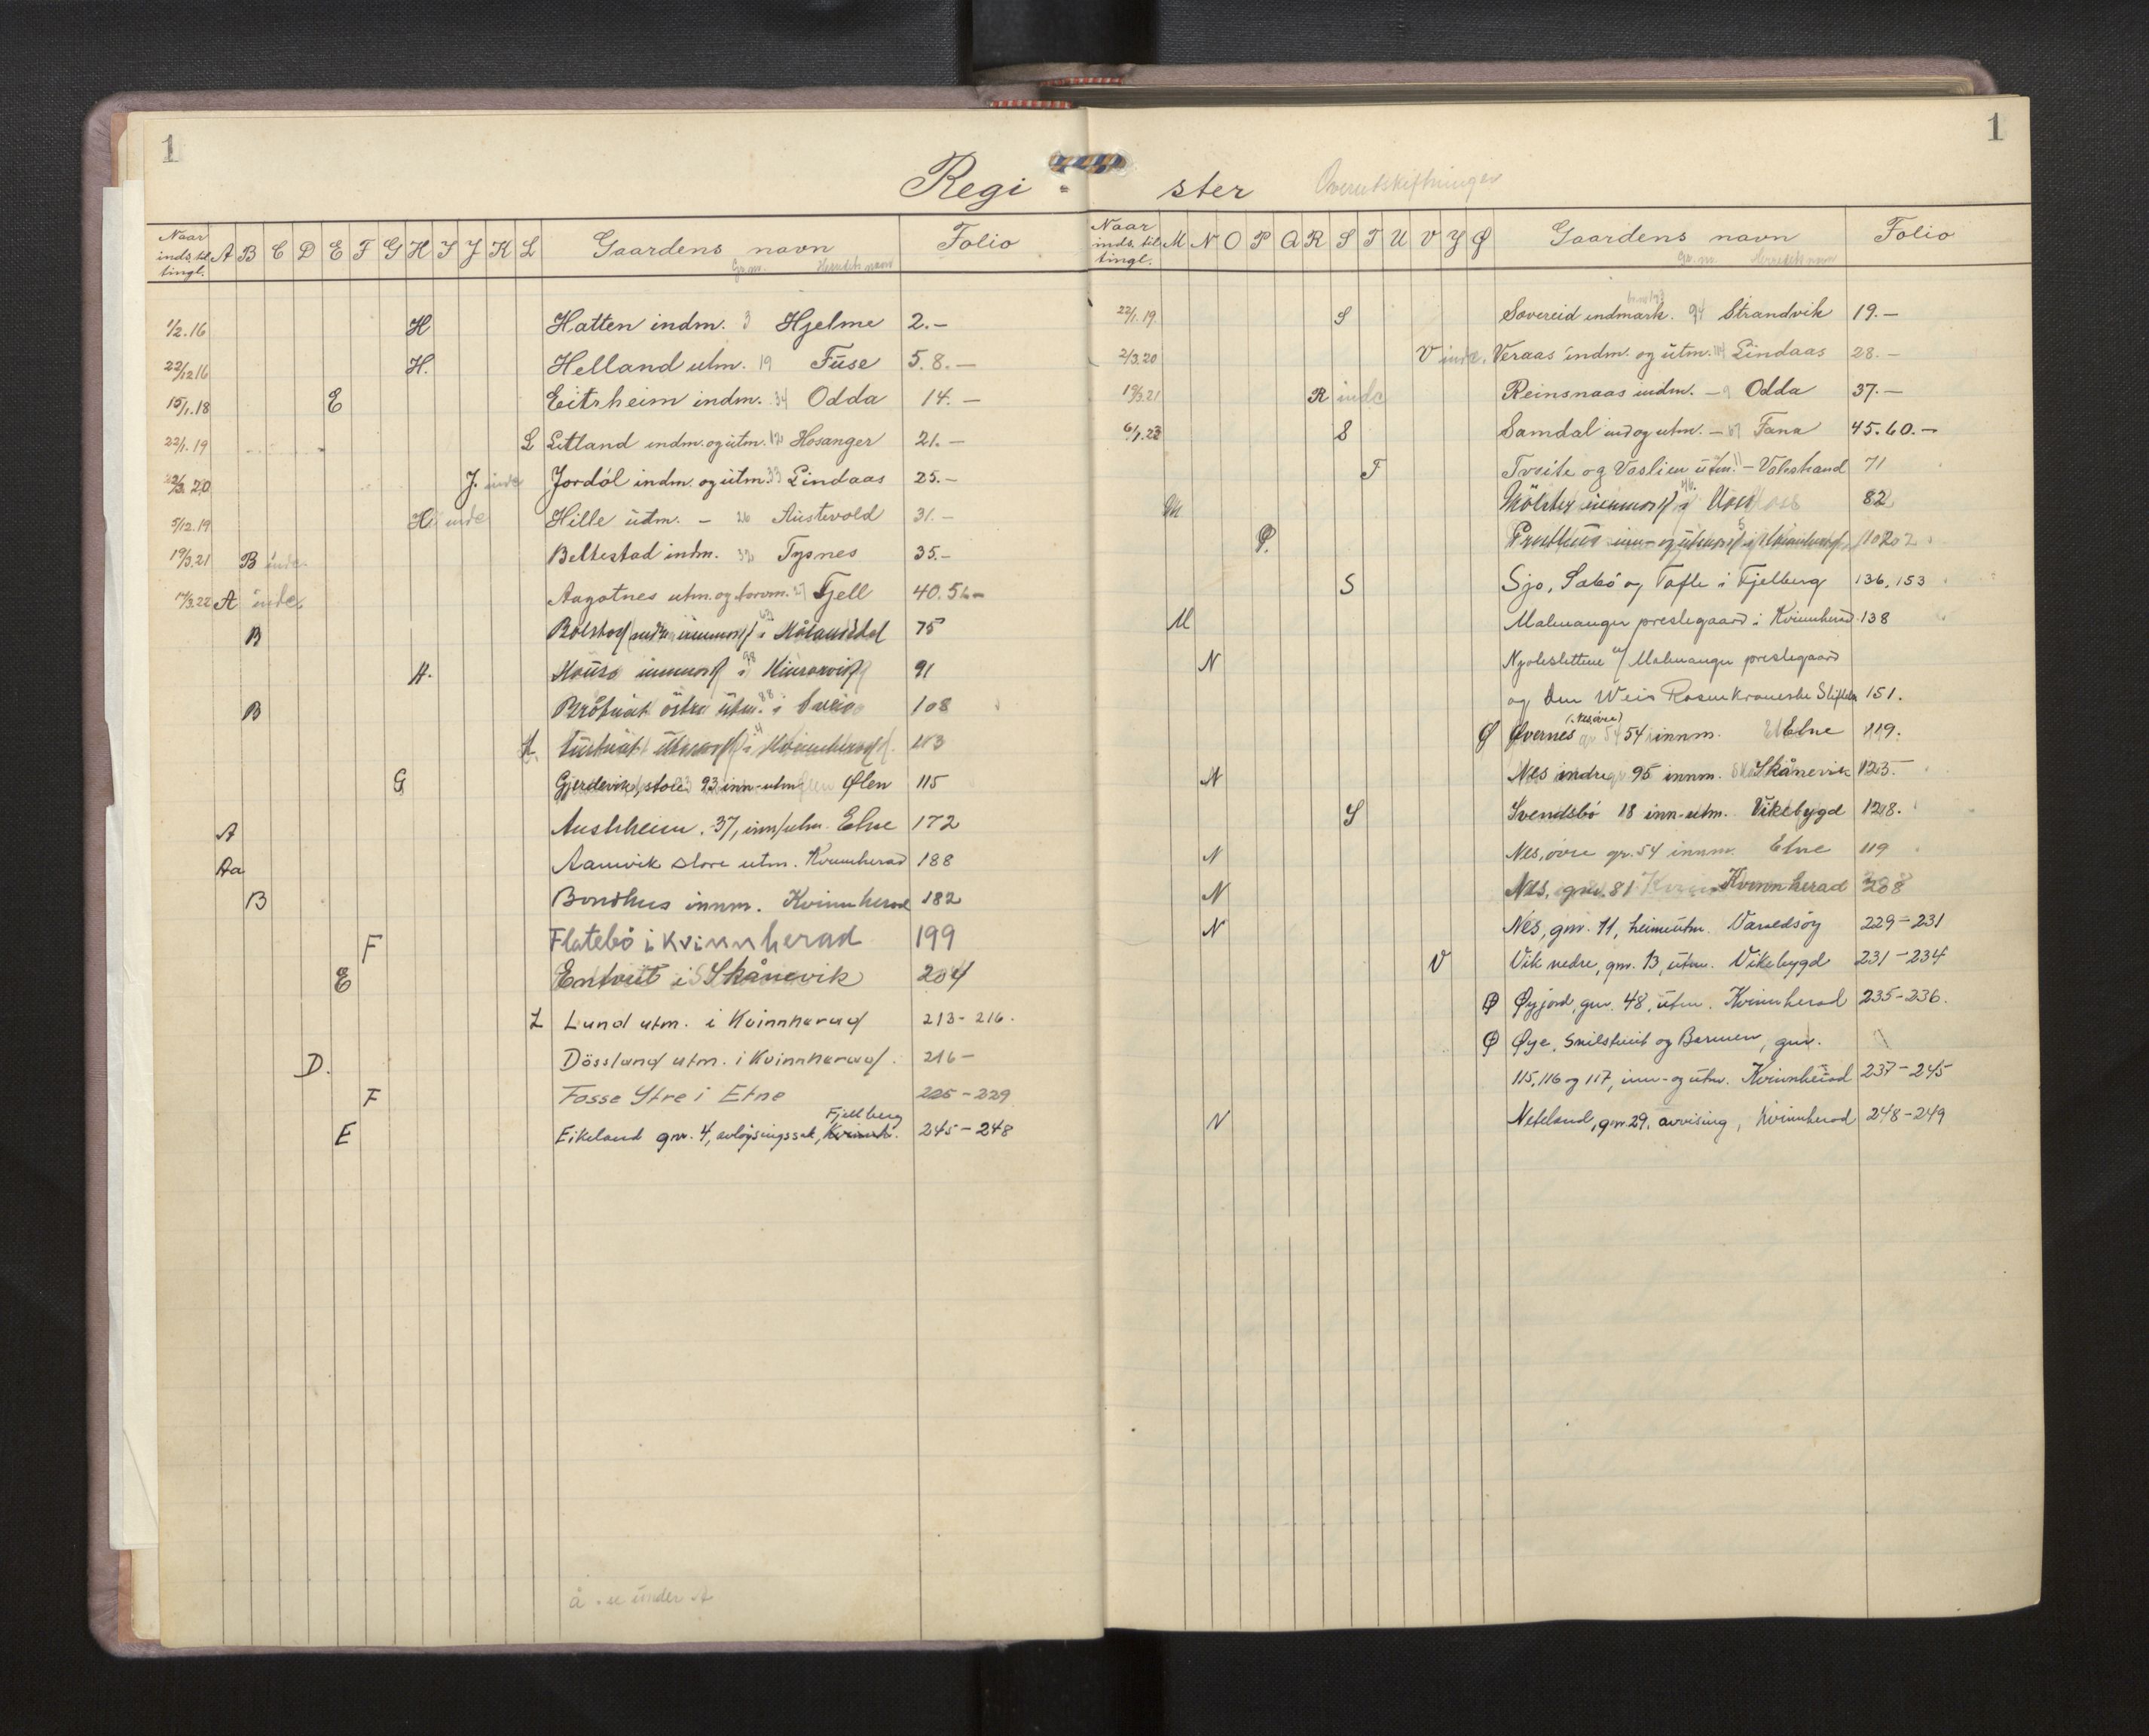 1
Regi-
Naar inds. til tingl. A B C D E F G H I J K L Gaardens navn Folio
Gr.nr. Herredets navn
1/2.16 H Hatten indm. 3 Hjelme 2.-
22/12 16 H. Helland utm. 19 Fuse 5.8.-
15/1.18 E Eitrheim indm. 34 Odda 14.-
22/1.19 L Letland indm. og utm. 12 Hosanger 21.-
22/3 20 J. inde Jordal indm. og utm. 33 Lindaas 25.-
5/12.19 H inde Hille utm. - 26 Austevold 31.-
19/3.21 B inde Beltestad indm. 32 Tysnes 35.-
17/3.22 A inde Aagotnes utm. og torvm. 27 Fjell 40.56-
B Bolstad indre innmark i 75
H. innmark i Kinsarvik 91
B østre utm. i Sveio 108
utmark i Kvinnherad. 113
G Gjerdevik, store 93 inn-utm Ølen 115
A Austrheim. 37, inn/utm. Etne 172
Aa Aamvik store utm. Kvinnherad 188
B Bondhus innm. Kvinnherad 182
F Flatebö i Kvinnherad 199
E i Skånevik 204
L Lund utm. i Kvinnherad 213-216.
D. Dössland utm. i Kvinnherad. 216-
F Fosse Ytre i Etne 225-229
Fjellberg
E Eikeland gnr. 4, avløysingssak, Kvinnh. 245-248
å - u under A
1
ster Overutskiftninger
Naar inds. til tingl. M N O P Q R S T U V Y Ø Gaardens navn Folio
Gr.nr. Herredets navn
22/1.19. S Sovereid indmark. 94 Strandvik 19.-
2/3.20 V inde. Veraas indm. og utm. Lindaas 28.-
19/3.21 R inde Reinsnaas indm. - 9 Odda 37.-
6/1.23 S Samdal ind og utm. - Fana 45.60.-
T Tveite og Vaslien utm. - Vikstrand 71
M Mölster innmark i Voss 82
P. inn- og utmark i Kvinnherad 102
S Sjo, Sæbö og Tofte i Fjelberg 136, 153
M Malmanger prestegaard i Kvinnherad 138
N u/ Malmanger prestegaard
og den Weis Rosenkroneske Stiftelse 151.
(Nes övre)
Ø Øvernes 54 innm. Etne 119.
N Nes indre 95 innm. Skånevik 123.-
S Svendsbö 18 inn-utm. Vikebygd 128.
N Nes, övre gr. 54 innm. Etne 119
N Nes, gnr. 81 Kvinnherad 208
N Nes, gnr. 11, heimeutm. Varaldsöy 229-231
V Vik nedre, gnr. 13, utm. Vikebygd 231-234
Ø Øyjord, gnr. 48, utm. Kvinnherad 235-236.
Ø Øye, Snilstveit og Bermen, gnr.
115, 116 og 117, inn- og utm. Kvinnherad 237-245
N Neteland, gnr. 29, avvising, Kvinnherad 248-249